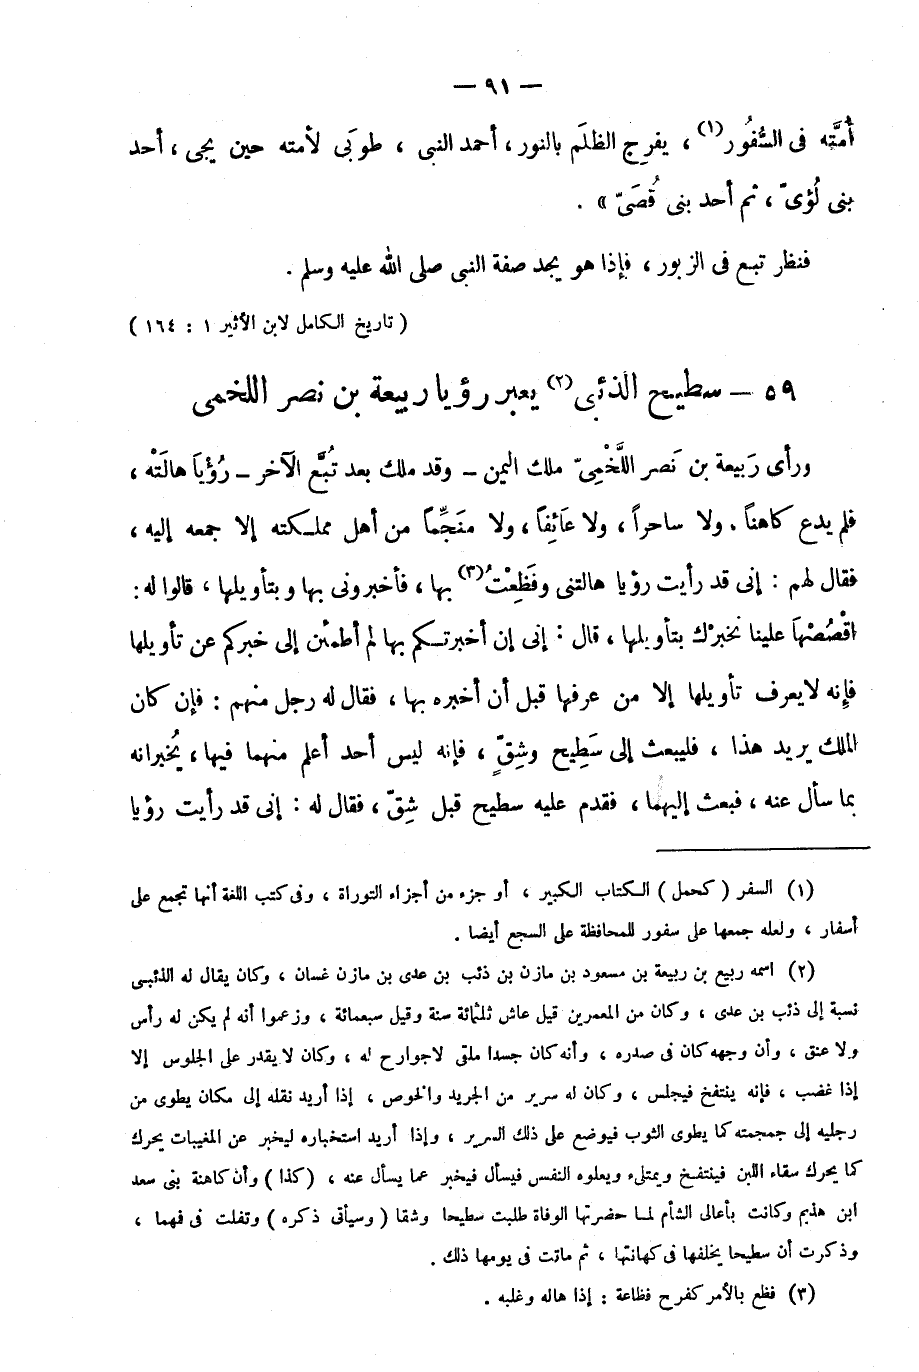 — ٩١ —
أُمَّتِه فى السُّفُور(١) ، يفرِج الظلَم بالنور ، أحمد النبى ، طوبَى لأمته حين يجى ، أحد
بنى لُؤىّ ، ثم أحد بنى قُصَىّ » .
فنظر تبع فى الزبور ، فإذا هو يجد صفة النبى صلى الله عليه وسلم .
( تاريخ الكامل لابن الأثير ١ : ١٦٤ )
٥٩ — سطيح الذئبى(٢) يعبر رؤيا ربيعة بن نصر اللخمى
ورأى رَبيعة بن نَصر اللَّخْمِىّ ملك اليمن – وقد ملك بعد تُبَّع الآخر – رُؤْيَا هالَتْه ،
فلم يدع كاهناً . ولا ساحراً ، ولا عَائِفاً ، ولا منَجِّماً من أهل مملكته إلا جمعه إليه ،
فقال لهم : إنى قد رأيت رؤيا هالتنى وفَظِعْتُ(٣) بها ، فأخبرونى بها وبتأويلها ، قالوا له :
اقْصُصْهَا علينا نخبرْك بتأويلها ، قال : إنى إن أخبرتكم بها لم أطمئن إلى خبركم عن تأويلها
فإِنه لايعرف تأويلها إلا من عرفها قبل أن أخبره بها ، فقال له رجل منهم : فإن كان
الملك يريد هذا ، فليبعث إلى سَطِيح وشِقٍّ ، فإنه ليس أحد أعلم منهما فيها ، يُخبرانه
بما سأل عنه ، فبعث إليهما ، فقدم عليه سطيح قبل شِقّ ، فقال له : إنى قد رأيت رؤيا
(١) السفر ( كحمل ) الكتاب الكبير ، أو جزء من أجزاء التوراة ، وفى كتب اللغة أنها تجمع على
أسفار ، ولعله جمعها على سفور للمحافظة على السجع أيضا .
(٢) اسمه ربيع بن ربيعة بن مسعود بن مازن بن ذئب بن عدى بن مازن غسان ، وكان يقال له الذئبى
نسبة إلى ذئب بن عدى ، وكان من المعمرين قيل عاش ثلثمائة سنة وقيل سبعمائة ، وزعموا أنه لم يكن له رأس
ولا عنق ، وأن وجهه كان فى صدره ، وأنه كان جسدا ملقى لاجوارح له ، وكان لا يقدر على الجلوس إلا
إذا غضب ، فإنه ينتفخ فيجلس ، وكان له سرير من الجريد والخوص ، إذا أريد نقله إلى مكان يطوى من
رجليه إلى جمجمته كما يطوى الثوب فيوضع على ذلك السرير ، وإذا أريد استخباره ليخبر عن المغيبات يحرك
كما يحرك سقاء اللبن فينتفخ ويمتلىء ويعلوه النفس فيسأل فيخبر عما يسأل عنه ، ( كذا ) وأن كاهنة بنى سعد
ابن هذيم وكانت بأعالى الشأم لما حضرتها الوفاة طلبت سطيحا وشقا ( وسيأتى ذكره ) وتفلت فى فهما ،
وذكرت أن سطيحا يخلفها فى كهانتها ، ثم ماتت فى يومها ذلك .
(٣) فظع بالأمر كفرح فظاعة : إذا هاله وغلبه .